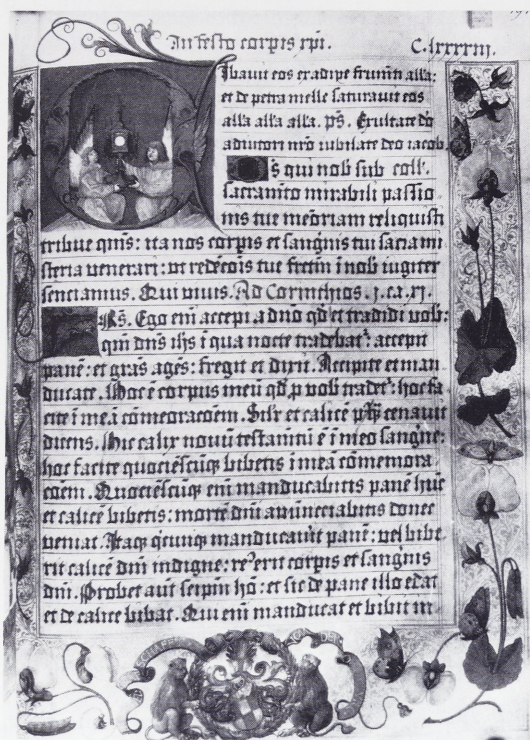 In festo corpis xpi. C. lxxxxiii.
Ibavit eos ex adipe frumti alla:
et de petra melle saturavit eos
alla alla alla. ps. Exultate deo
adiutori nro iubilate deo iacob.
s qui nob sub coll.
sacramto mirabili passio
nis tue memoriam reliquisti
tribue qms: ita nos corpis et sangnis tui sacra mi
steria venerari: ut redeois tue fretm i nob iugiter
senciamus. Qui vivis. Ad Corinthios. j. c. xj.
rs. Ego em accepi a dno qd et tradidi vob:
qm dns ihs i qua nocte tradebat: accepit
pane: et gras ages: fregit et dixit. Accipite et man
ducate. Hoc e corpus meu qd p vob tradet: hoc fa
cite i mea comeoracoem. Silr et calice postq cenavit
dicens. Hic calix novu testamti e i meo sangne:
hoc facite quociescuq bibetis i mea comemora
coem. Quociescuq em manducabitis pane huc
et calice bibetis: morte dni anunciabitis donec
veniat. Itaq qcuq manducavit pane: vel bibe
rit calice dni indigne: reus erit corpis et sangnis
dni. Probet aut seipm ho: et sic de pane illo edat
et de calice bibat. Qui em manducat et bibit in